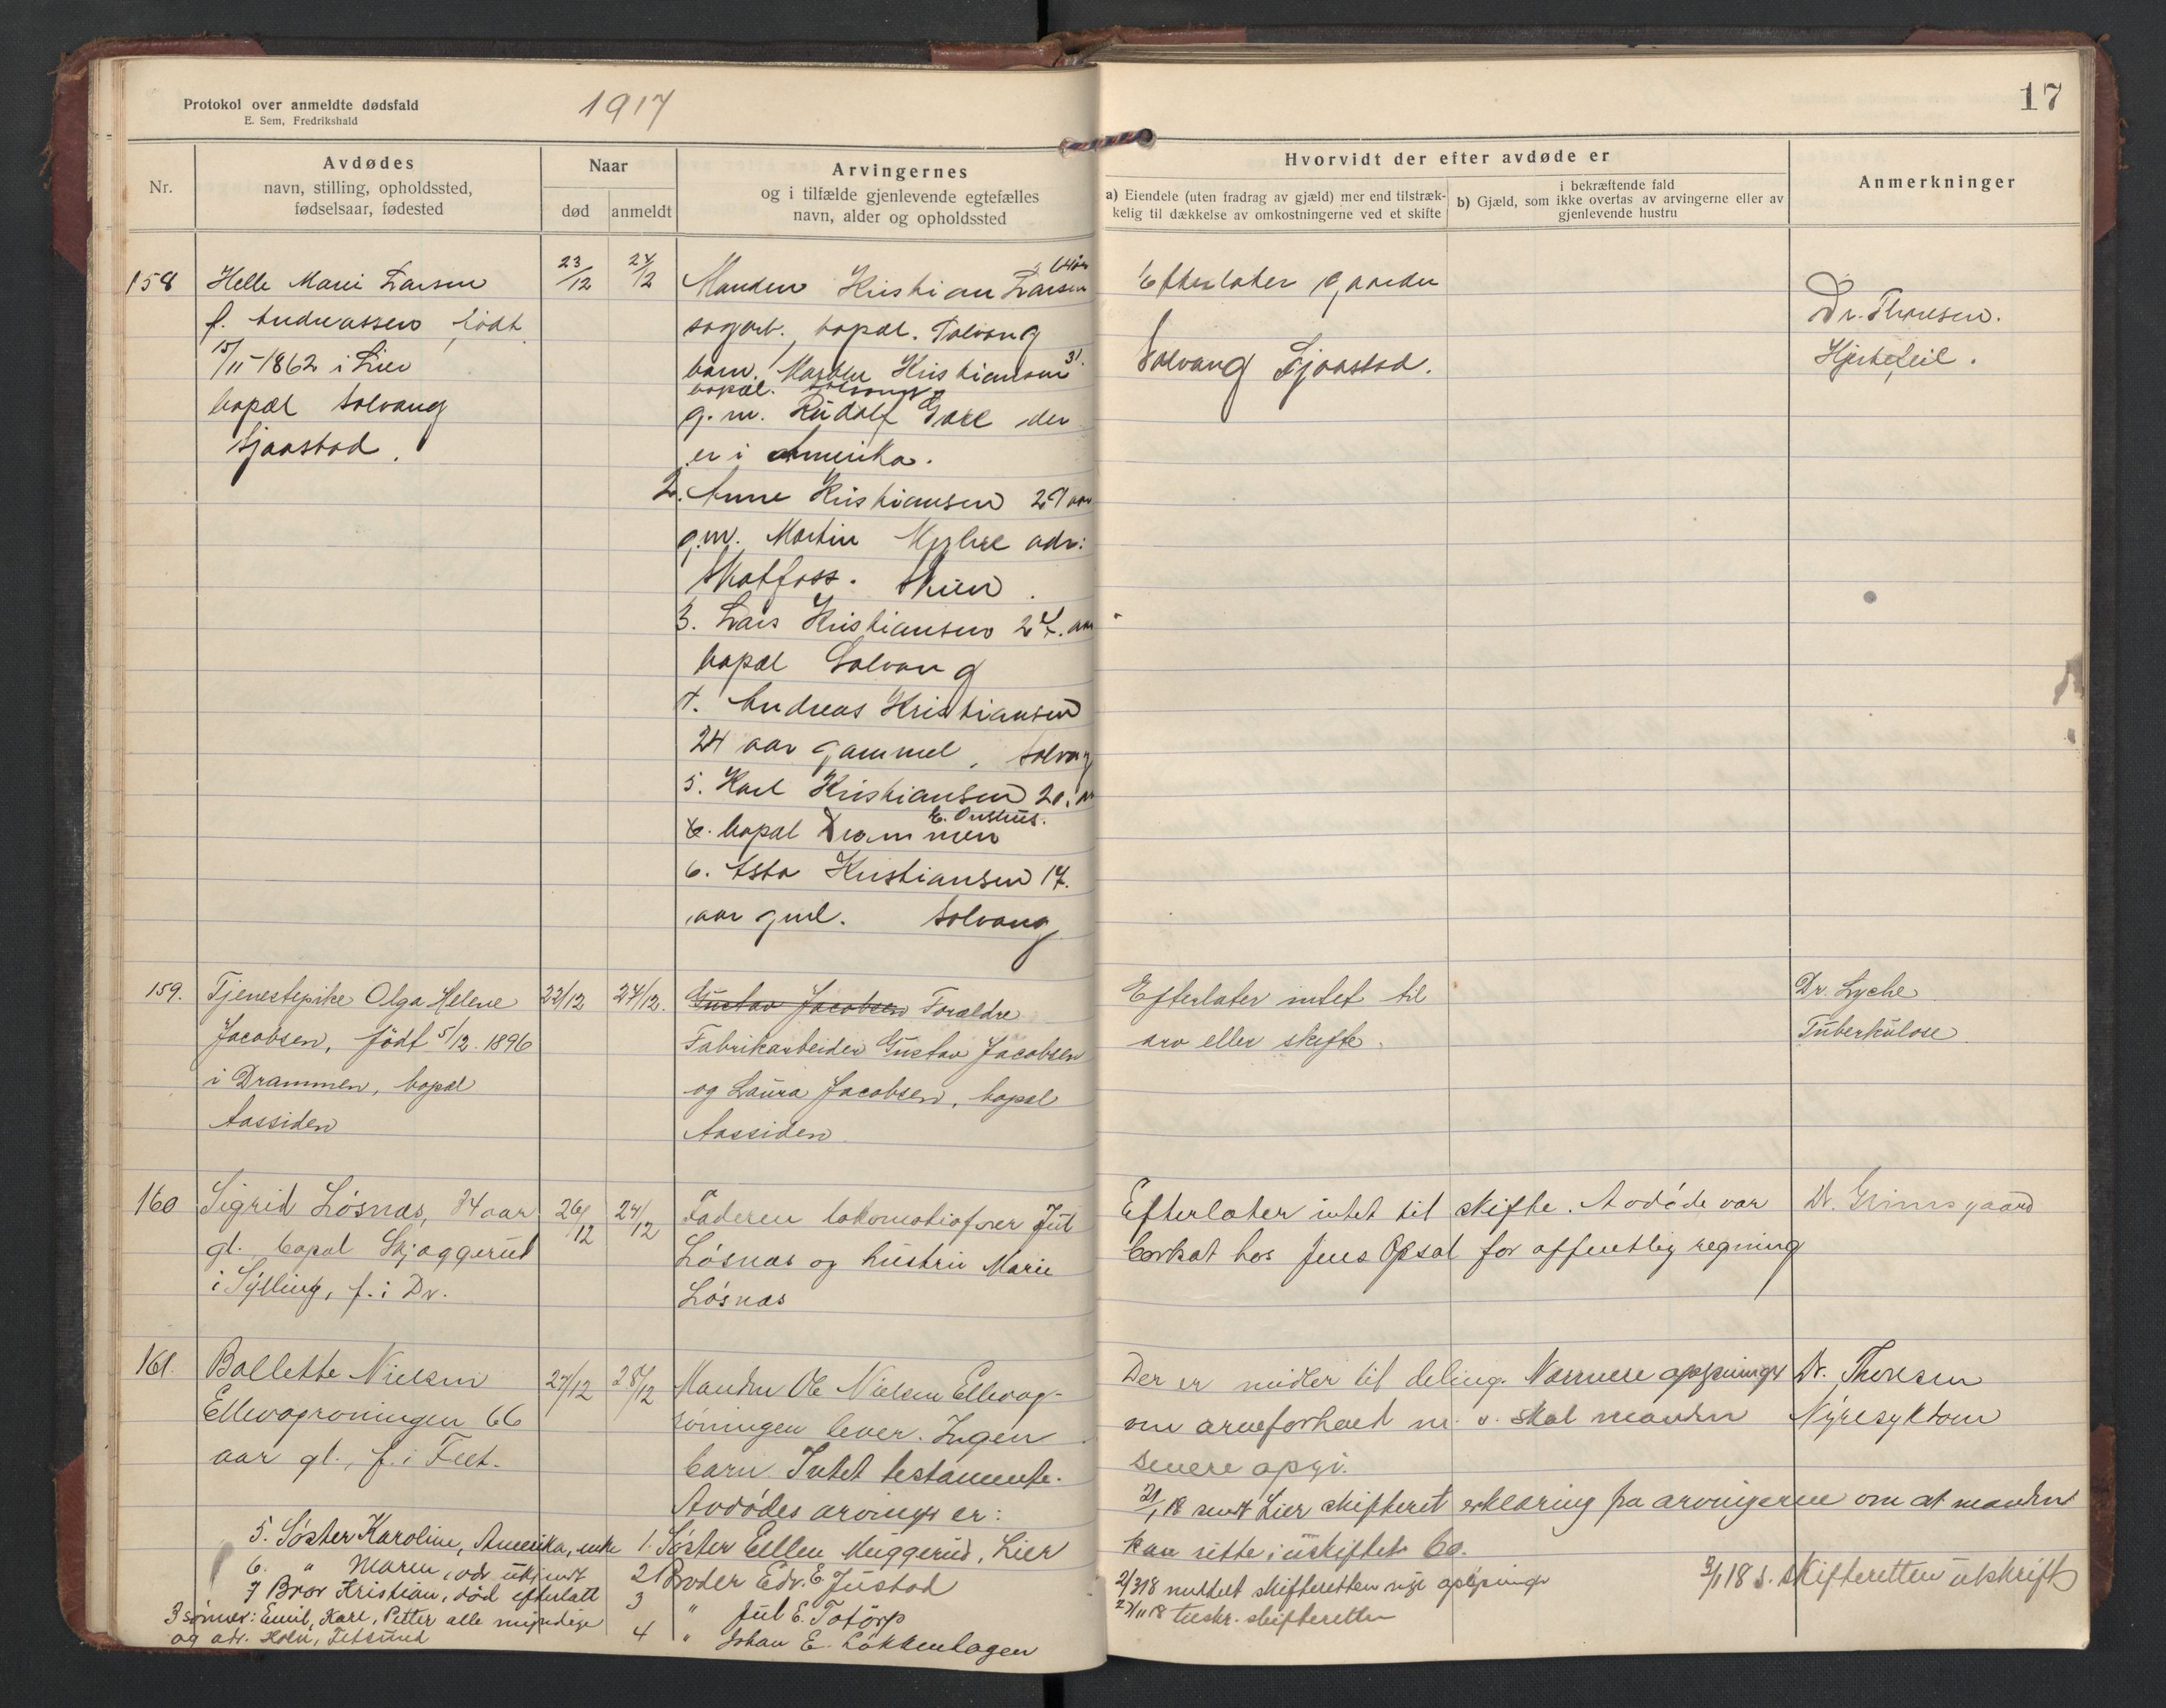 Protokol over anmeldte dødsfald
E. Sem, Fredrikshald
1917
Nr.
Avdødes
navn, stilling, opholdssted,
fødselsaar, fødested
Naar
død
anmeldt
Arvingernes
og i tilfælde gjenlevende egtefælles
navn, alder og opholdssted
158
Helle Marie Larsen
f. Andreassen født
15/11-1862 i Lier
bopæl Solvang
Sjaastad.
23/12
24/12
Manden Kristian Larsen
sagarb., bopæl. Solvang
barn. Marthe Kristiansen 31.
bopæl. Solvang
g. m. Rudolf der
er i Amerika.
2. Anne Kristiansen 29 aar
g.m. Martin Myhre adr:
Skotfoss. Skien.
3. Lars Kristiansen 27. aar
bopæl Solvang
4. Andreas Kristiansen
24 aar gammel, Solvang
5. Karl Kristiansen 20. aar
bopæl Drammen
6. Asta Kristiansen 17.
aar gml. Solvang
159.
Tjenestepike Olga Helene
Jacobsen, født 5/12. 1896
i Drammen, bopæl
Aassiden
22/12
27/12.
Gustav Jacobsen Forældre
Fabrikarbeider Gustav Jacobsen
og Laura Jacobsen, bopæl
Aassiden
160
Sigrid Løsnæs, 34 aar
gl. bopæl Skjæggerud
i Sylling, f. i Dr.
26/12
27/12
Faderen lokomotivfører Jul
Løsnæs og hustru Marie
Løsnæs
161.
Ballette Nielsen
Ellevogroningen 66
aar gl., f. i Feet.
27/12
28/12
Manden Ole Nielsen Ellevog-
roningen lever. Ingen
barn. Intet testamente.
Avdødes arvinger er:
1. Søster Ellen Muggerud, Lier
2 Broder Edv. E Justad
3 " Jul E. Totorp
4 " Johan E. Løkkenhagen
5. Søster Karoline, Amerika, enke
6. " Maren, adr ukjendt
7 Bror Kristian, død efterlatt
3 sønner: Emil, Karl, Petter alle myndige
og adr. Holn, Fetsund
17
Hvorvidt der efter avdøde er
a) Eiendele (uten fradrag av gjæld) mer end tilstræk-
kelig til dækkelse av omkostningerne ved et skifte
i bekræftende fald
b) Gjæld, som ikke overtas av arvingerne eller av
gjenlevende hustru
Anmerkninger
Efterlater gaarden
Solvang Sjaastad.
Dr. Thoresen.
Hjertefeil.
Efterlater intet til
arv eller skifte.
Dr. Lyche
Tuberkulose.
Efterlater intet til skifte. Avdøde var
bortsat hos Jens Opsal for offentlig regning
Dr. Grimsgaard
Der er midler til deling. Nærmere opgivninger
om arveforhold m. v. skal manden
senere opgi.
Dr. Thoresen
Nyresykdom
21/1 18 sendt Lier skifteret erklæring fra arvingerne om at manden
kan sitte i uskiftet bo.
2/3 18 meddelt skifteretten nye opgivninger
27/11 18 tilskr. skifteretten
3/1 18 s. skifteretten utskrift